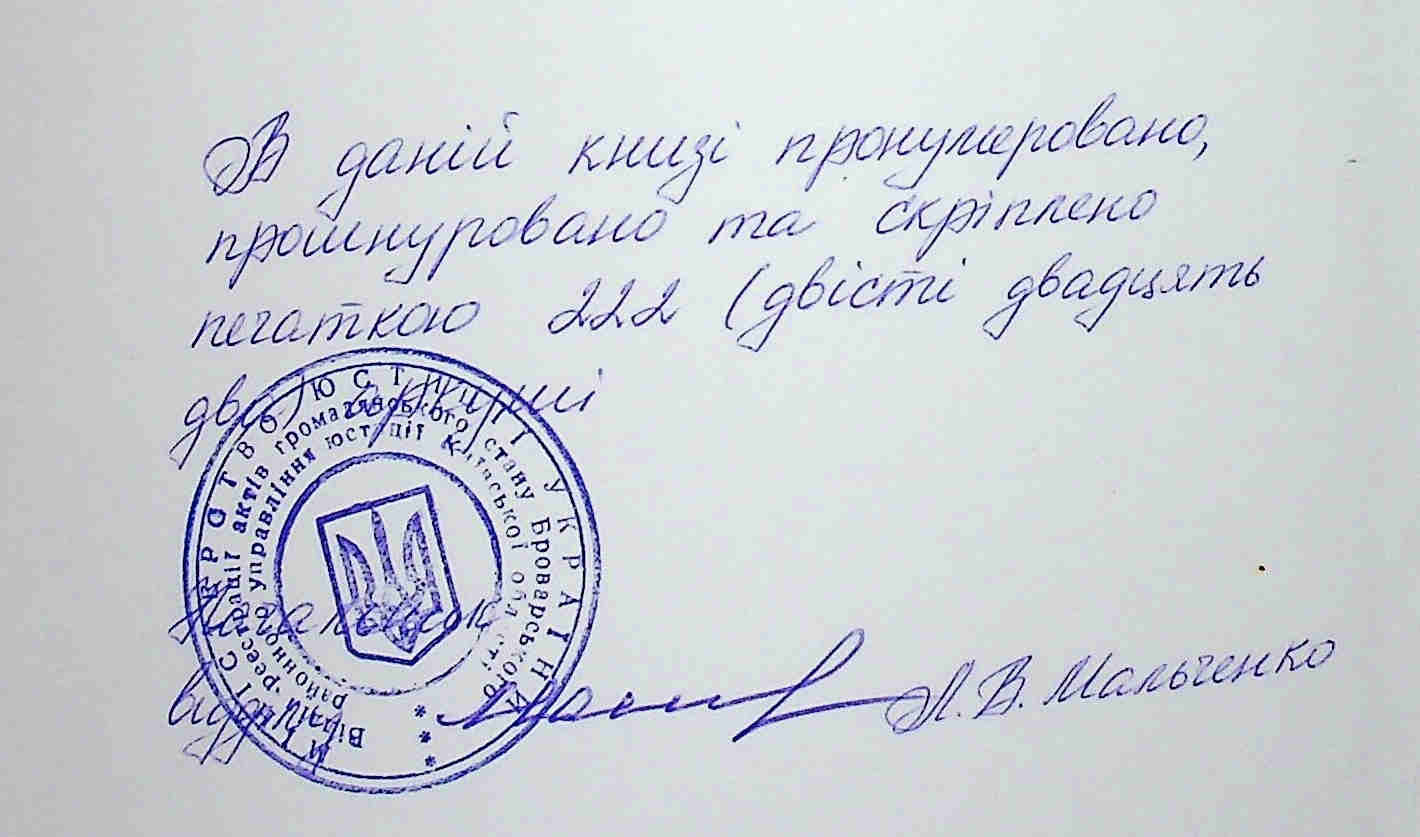 В даній книзі пронумеровано,
прошнуровано та скріплено
печаткою 222 (двісті двадцять
два) аркуші
Начальник
відділу
Л. В. Мальченко
МІНІСТЕРСТВО ЮСТИЦІЇ УКРАЇНИ
Відділ реєстрації актів громадянського стану Броварського
районного управління юстиції Київської області